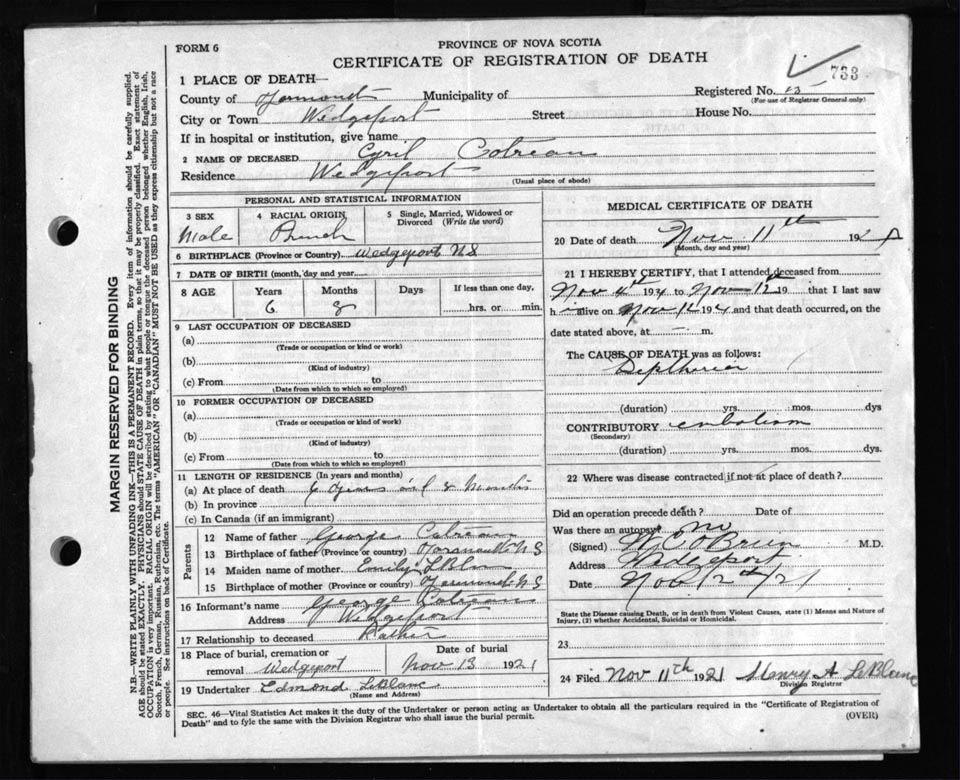 FORM 6
PROVINCE OF NOVA SCOTIA
CERTIFICATE OF REGISTRATION OF DEATH
733
1 PLACE OF DEATH—
Registered No. 13
(For use of Registrar General only)
County of Yarmouth Municipality of
City or Town Wedgeport Street House No.
If in hospital or institution, give name
2 NAME OF DECEASED Cyril Cotreau
Residence Wedgeport
(Usual place of abode)
PERSONAL AND STATISTICAL INFORMATION
3 SEX 4 RACIAL ORIGIN 5 Single, Married, Widowed or Divorced (Write the word)
Male French
6 BIRTHPLACE (Province or Country) Wedgeport N S
7 DATE OF BIRTH (month, day and year)
8 AGE Years Months Days If less than one day,
6 8 hrs. or min.
9 LAST OCCUPATION OF DECEASED
(a)
(Trade or occupation or kind or work)
(b)
(Kind of industry)
(c) From to
(Date from which to which so employed)
10 FORMER OCCUPATION OF DECEASED
(a)
(Trade or occupation or kind or work)
(b)
(Kind of industry)
(c) From to
(Date from which to which so employed)
11 LENGTH OF RESIDENCE (In years and months)
(a) At place of death 6 years 8 Months
(b) In province
(c) In Canada (if an immigrant)
Parents
12 Name of father George Cotreau
13 Birthplace of father (Province or country) Yarmouth N S
14 Maiden name of mother Emily LeBlanc
15 Birthplace of mother (Province or country) Yarmouth N S
16 Informant's name George Cotreau
Address Wedgeport
17 Relationship to deceased Father
18 Place of burial, cremation or Date of burial
removal Wedgeport Nov 13 1921
19 Undertaker Edmond LeBlanc
(Name and Address)
MEDICAL CERTIFICATE OF DEATH
20 Date of death Nov 11th 192
(Month, day and year)
21 I HEREBY CERTIFY, that I attended deceased from
Nov 4th 19 to Nov 12th 19 that I last saw
h alive on Nov 19 and that death occurred, on the
date stated above, at m.
The CAUSE OF DEATH was as follows:
Diptheria
(duration) yrs. mos. dys
CONTRIBUTORY embolism
(Secondary)
(duration) yrs. mos. dys
22 Where was disease contracted if not at place of death?
Did an operation precede death? Date of
Was there an autopsy? no
(Signed) O'Brien M.D.
Address Wedgeport
Date Nov 12th/21
State the Disease causing Death, or in death from Violent Causes, state (1) Means and Nature of
Injury, (2) whether Accidental, Suicidal or Homicidal.
23
24 Filed Nov 11th 1921 Henry A LeBlanc
Division Registrar
SEC. 46—Vital Statistics Act makes it the duty of the Undertaker or person acting as Undertaker to obtain all the particulars required in the "Certificate of Registration of
Death" and to fyle the same with the Division Registrar who shall issue the burial permit.
(OVER)
MARGIN RESERVED FOR BINDING
N.B.—WRITE PLAINLY WITH UNFADING INK—THIS IS A PERMANENT RECORD. Every item of information should be carefully supplied.
AGE should be stated EXACTLY. PHYSICIANS should STATE CAUSE OF DEATH in plain terms, so that it may be properly classified. Exact statement of
OCCUPATION is very important. RACIAL ORIGIN will be described by stating to what people or tongue the deceased person belonged whether English, Irish,
Scotch, French, German, Russian, Ruthenian, etc. The terms "AMERICAN" OR "CANADIAN" MUST NOT BE USED as they express citizenship but not a race
or people. See instructions on back of Certificate.